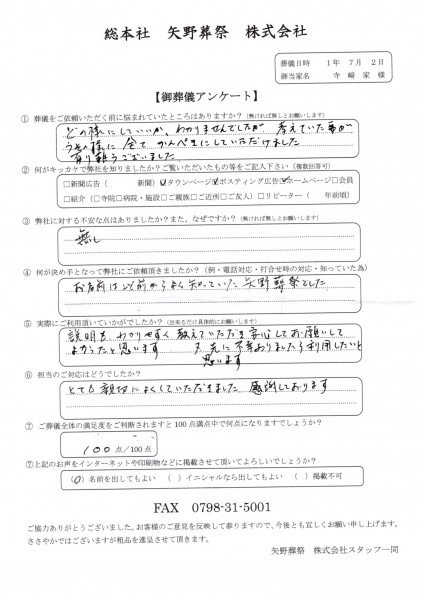 総本社 矢野葬祭 株式会社
葬儀日時 1年 7月 2日
御当家名 寺﨑 家 様
【御葬儀アンケート】
① 葬儀をご依頼いただく前に悩まれていたところはありますか？(無ければ無しとお願いします)
どの様にしていいか、わかりませんでしたが 考えていた事が
うその様に全てかんぺきにしていただけました
有り難うございました
② 何がキッカケで弊社を知りましたか？ご覧いただいたもの等をご記入下さい（複数回答可）
□新聞広告（ 新聞）☑タウンページ☑ポスティング広告☑ホームページ□会員
□紹介（□寺院□病院・施設□ご親族□ご近所□ご友人）□リピーター（ 年前頃）
③ 弊社に対する不安な点はありましたか？また、なぜですか？(無ければ無しとお願いします)
無し
④ 何が決め手となって弊社にご依頼頂きましたか？（例・電話対応・打合せ時の対応・知っていた為）
お名前は以前からよく知っていた矢野葬祭でした
⑤ 実際にご利用頂いていかがでしたか？(出来るだけ具体的にお願いします)
説明を、わかりやすく教えていただき安心してお願いして
よかったと思います 又先に不幸ありましたら利用したいと
思います
⑥ 担当のご対応はどうでしたか？
とても親切によくしていただきました 感謝しております
⑦ ご葬儀全体の満足度をご判断されますと100点満点中で何点になりますでしょうか？
100点/100点
⑦上記のお声をインターネットや印刷物などに掲載させて頂いてよろしいでしょうか？
（○）名前を出してもよい （ ）イニシャルなら出してもよい （ ）掲載不可
FAX 0798-31-5001
ご協力ありがとうございました。お客様のご意見を反映して参りますので、今後とも宜しくお願い申し上げます。
ささやかではございますが粗品を進呈させて頂きます。
矢野葬祭 株式会社スタッフ一同